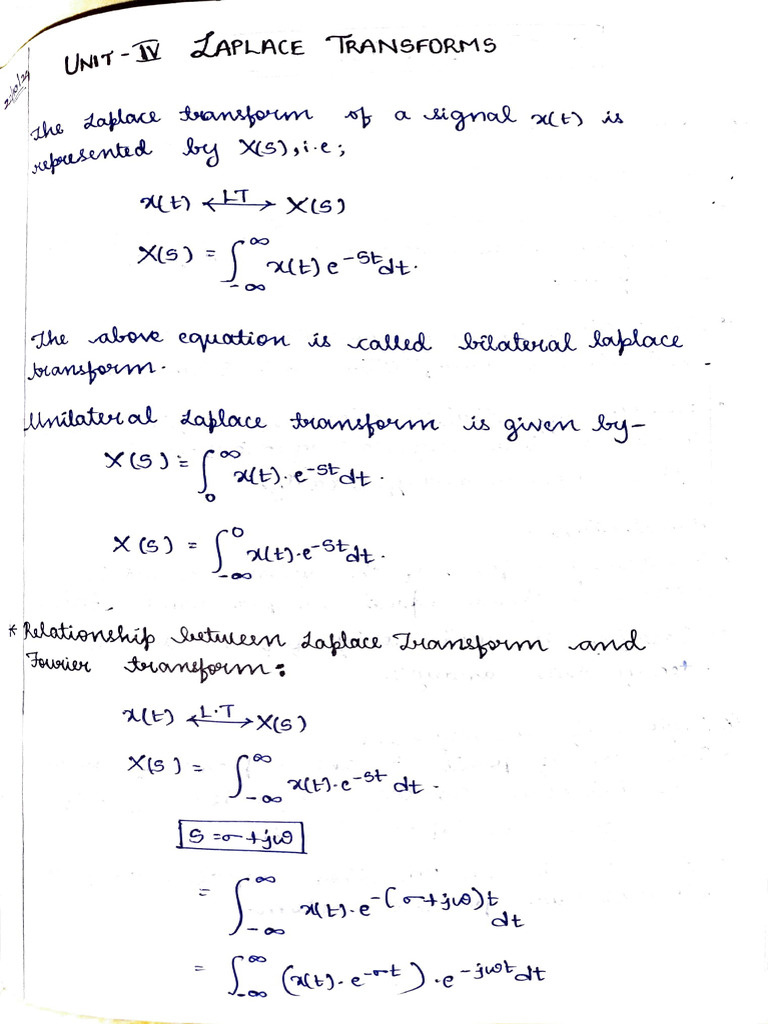 UNIT-IV LAPLACE TRANSFORMS
The Laplace transform of a signal x(t) is
represented by X(s), i.e;
x(t) <-LT-> X(s)
X(s) = ∫_{-∞}^{∞} x(t) e^{-st} dt.
The above equation is called bilateral laplace
transform.
Unilateral Laplace transform is given by-
X(s) = ∫_{0}^{∞} x(t). e^{-st} dt.
X(s) = ∫_{-∞}^{0} x(t).e^{-st} dt.
* Relationship between Laplace Transform and
Fourier transform:
x(t) <-L.T-> X(s)
X(s) = ∫_{-∞}^{∞} x(t).e^{-st} dt.
S = σ+jω
= ∫_{-∞}^{∞} x(t).e^{-(σ+jω)t} dt
= ∫_{-∞}^{∞} (x(t).e^{-σt}).e^{-jωt} dt